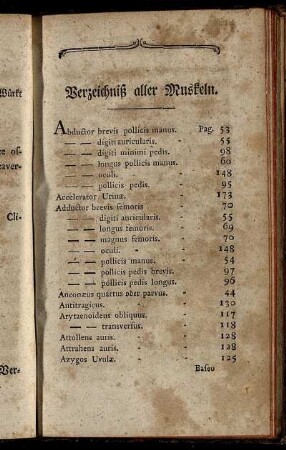 Verzeichniß aller Muskeln.
Abductor brevis pollicis manus. Pag. 53
— — digiti auricularis. - 55
— — digiti minimi pedis. - 98
— — longus pollicis manus. - 60
— — oculi. - - 148
— — pollicis pedis. - 95
Accelerator Urinæ. - - 173
Adductor brevis femoris - 70
— — digiti auricularis. - 55
— — longus femoris. - 69
— — magnus femoris. - 70
— — oculi. - - 148
— — pollicis manus. - 54
— — pollicis pedis brevis. - 97
— — pollicis pedis longus. - 96
Anconæus quartus oder parvus. - 44
Antitragicus. - - 130
Arytaenoideus obliquus. - 117
— — transversus. - 118
Attollens auris. - - 128
Attrahens auris. - - 128
Azygos Uvulæ. - - 125
Würkt
Cli-
Ver-